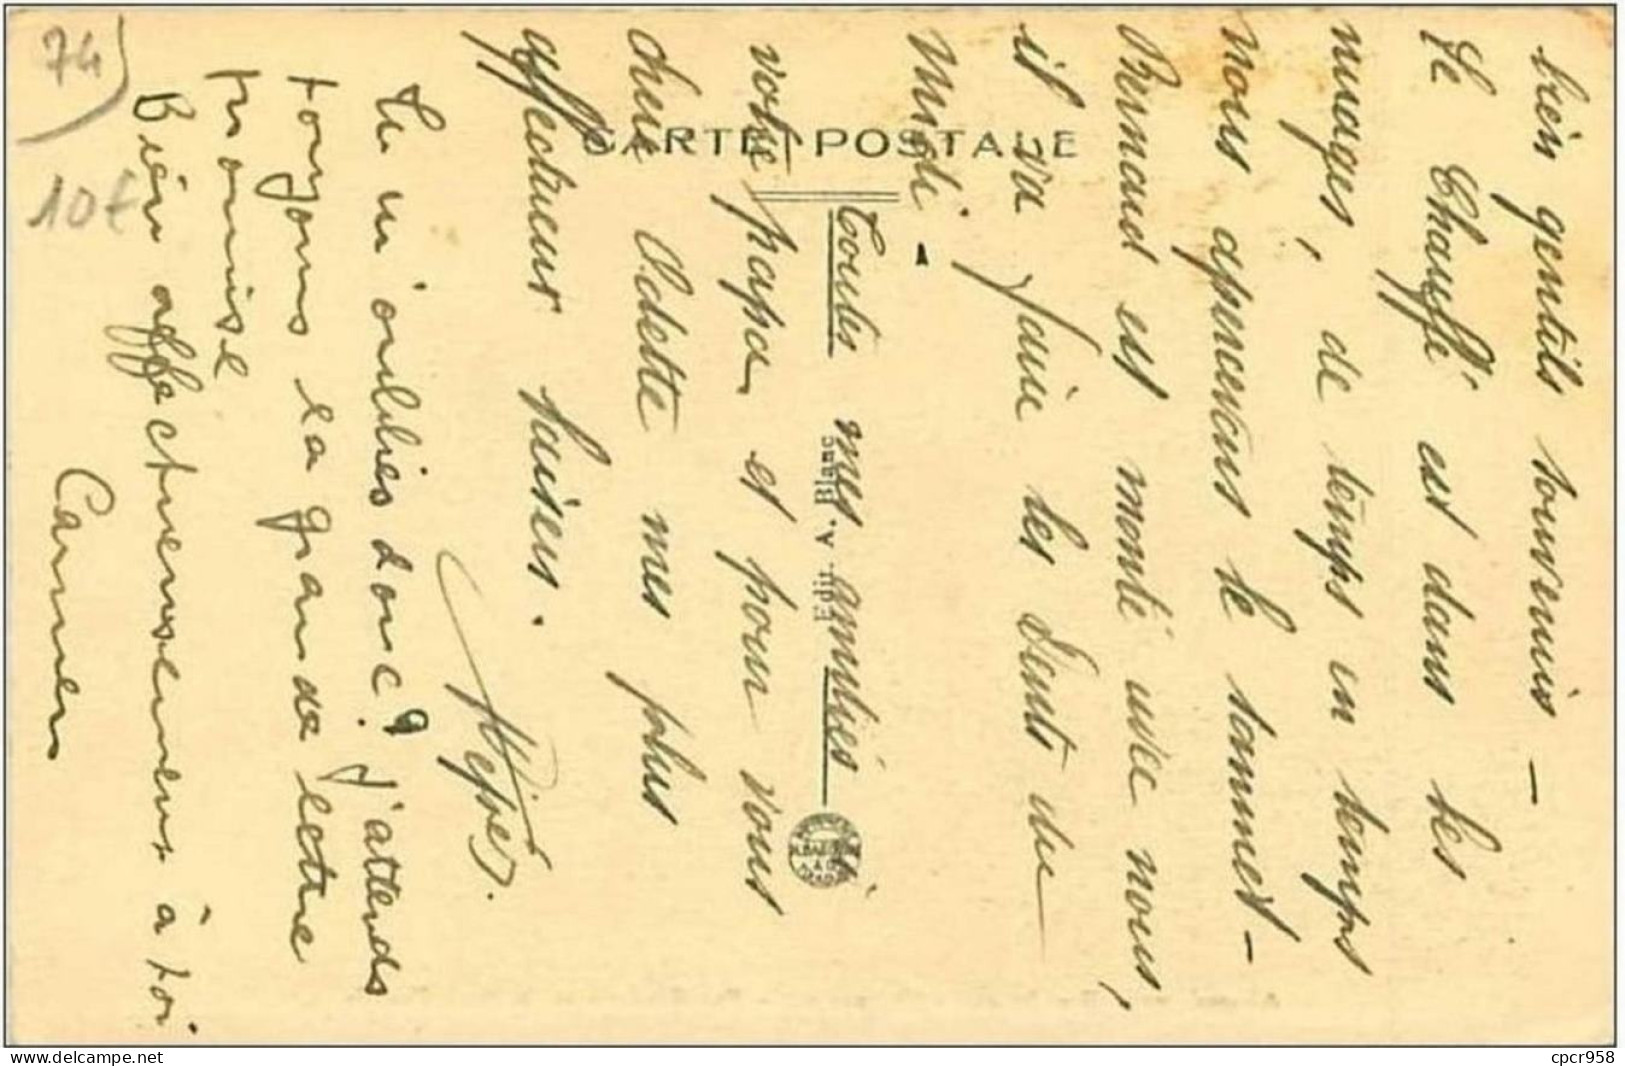 bien gentils souvenirs -
Le Chauffé est dans les
nuages, de temps en temps
nous apercevons le sommet -
Bernard est monté avec nous,
il va faire les Dents du
Midi.
Toutes mes amitiés à
votre papa et pour vous
chère Odette mes plus
affectueux baisers.
Tu m'oublies donc? J'attends
toujours la grande lettre
promise
Bien affectueusement à toi
Carmen
CARTE POSTALE
Edit. V. Blanc
74
10€
www.delcampe.net
cpcr958